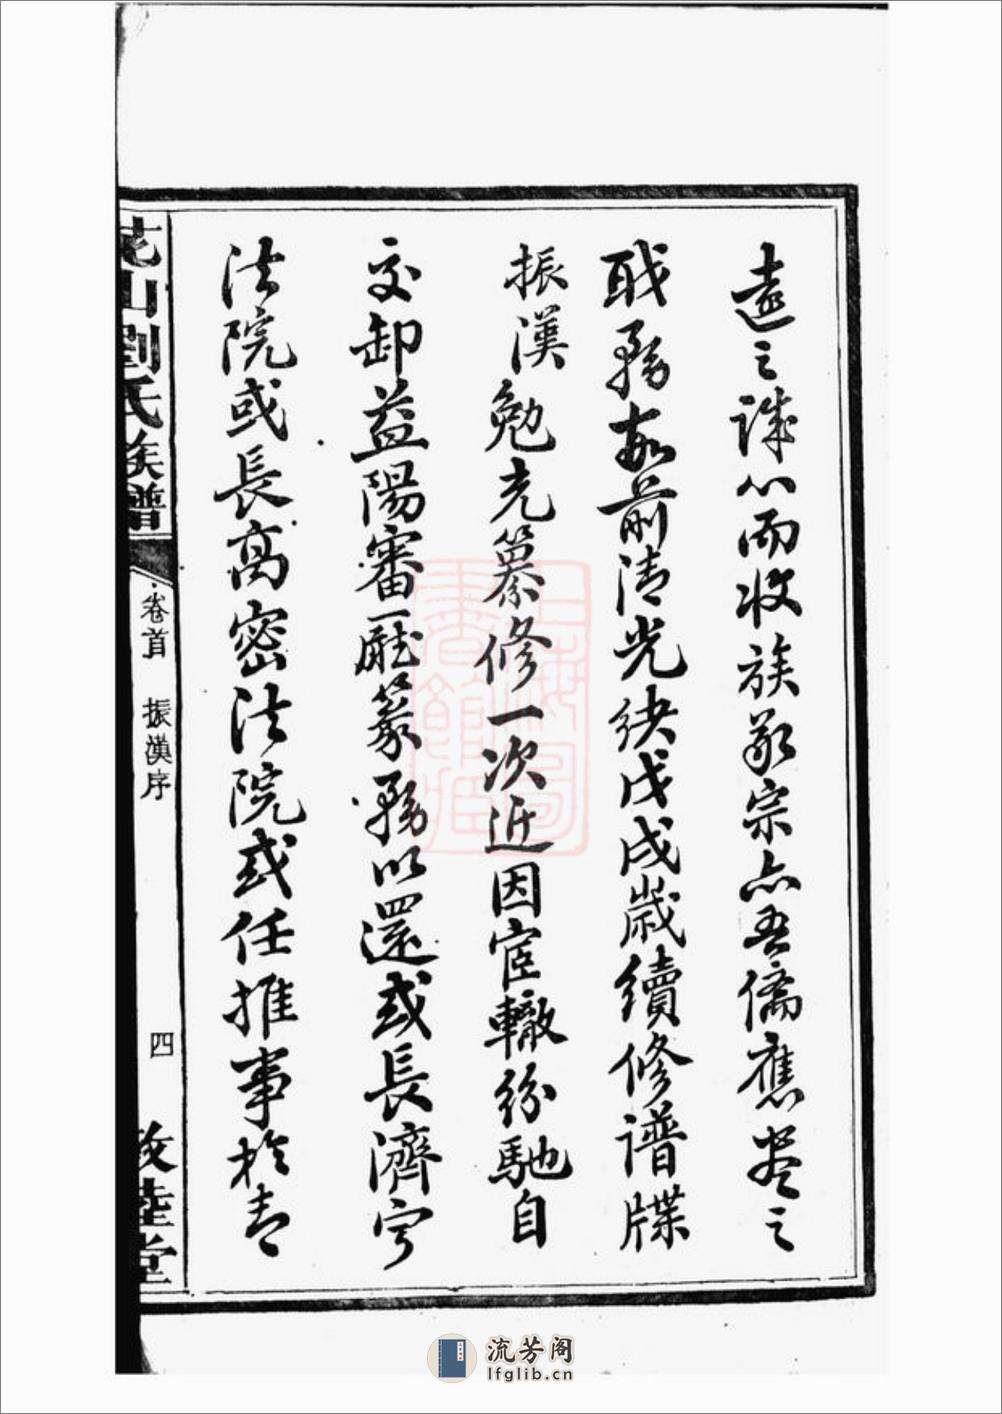 遠之誠心而收族敬宗亦吾儒應盡之
職務故前清光緒戊戌歲續修譜牒
振漢勉充纂修一次近因宦轍紛馳自
交卸益陽審廳篆務以還或長濟寧
法院或長高密法院或任推事於青
山劉氏族譜
卷首 振漢序
四
敦睦堂
上海圖書館藏
流芳阁
lfglib.cn